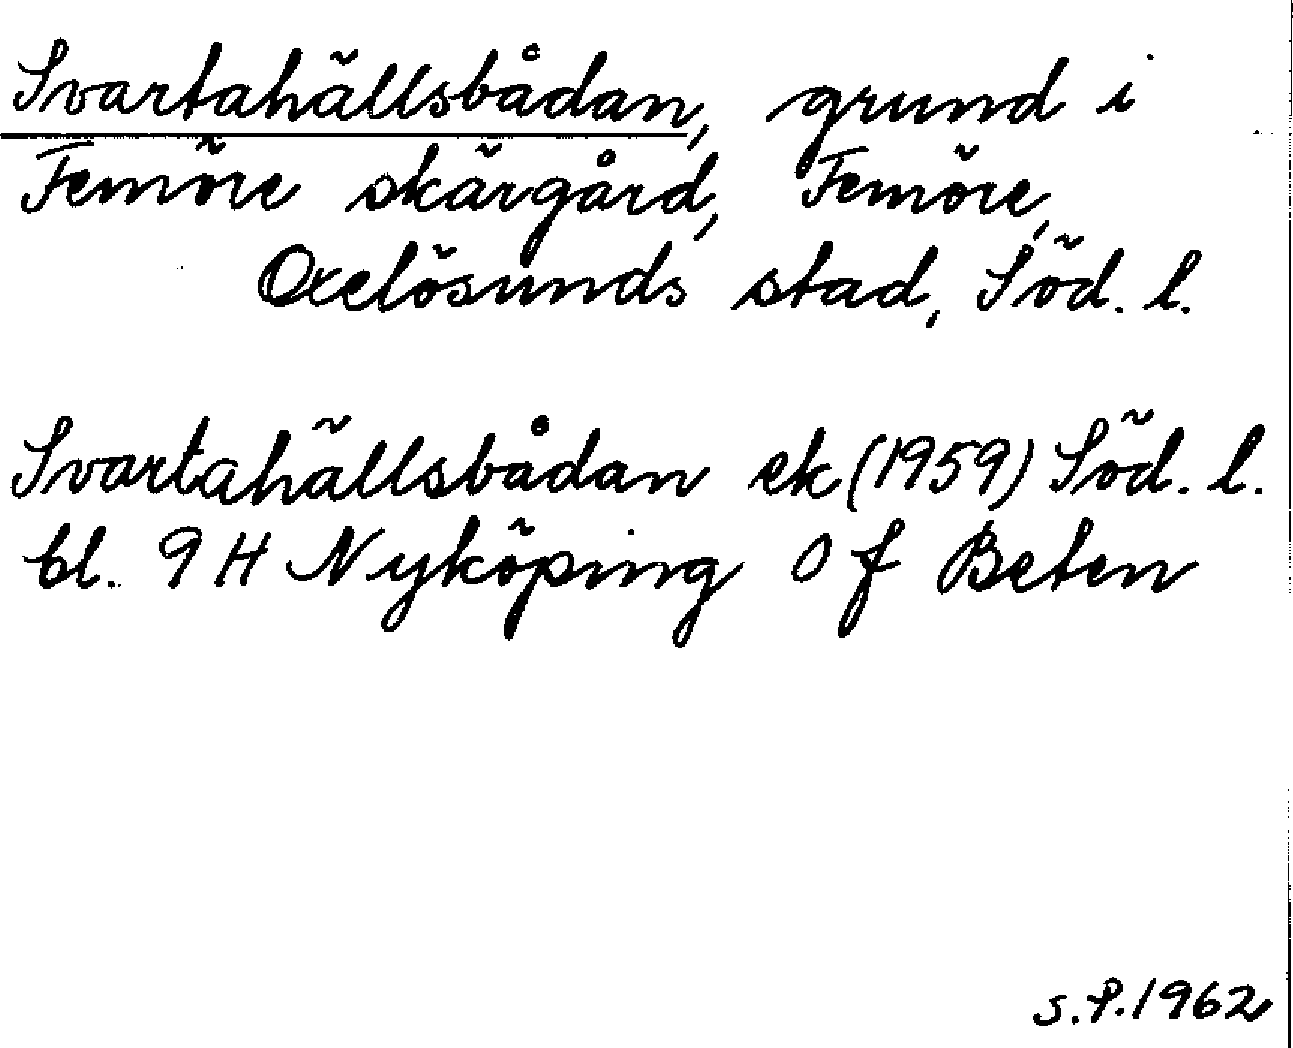 Svartahällsbådan, grund i
Femöre skärgård, Femöre,
Oxelösunds stad, Söd. l.
Svartahällsbådan ek (1959) Söd. l.
bl. 9 H Nyköping 0 f Beten
S.P. 1962